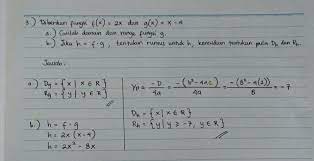 3.) Diberikan fungsi f(x) = 2x dan g(x) = x - 4
a.) Carilah domain dan range fungsi g.
b.) Jika h = f · g, tentukan rumus untuk h, kemudian tentukan pula Dh dan Rh.
Jawab :
a.) Dg = { x | x ∈ R }
Rg = { y | y ∈ R }
b.) h = f · g
h = 2x (x - 4)
h = 2x² - 8x
Yp = -D/4a = -(b² - 4ac)/4a = = -7
Dh = { x | x ∈ R }
Rh = { y | y ≥ -7, y ∈ R }